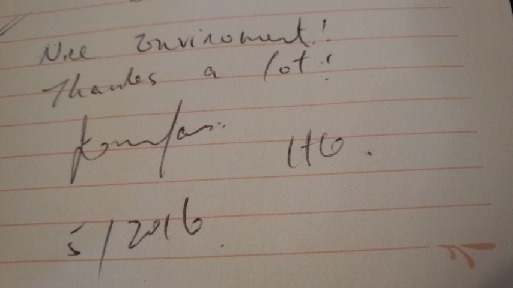 Nice Enviroment!
Thanks a lot!
HO.
5/2016